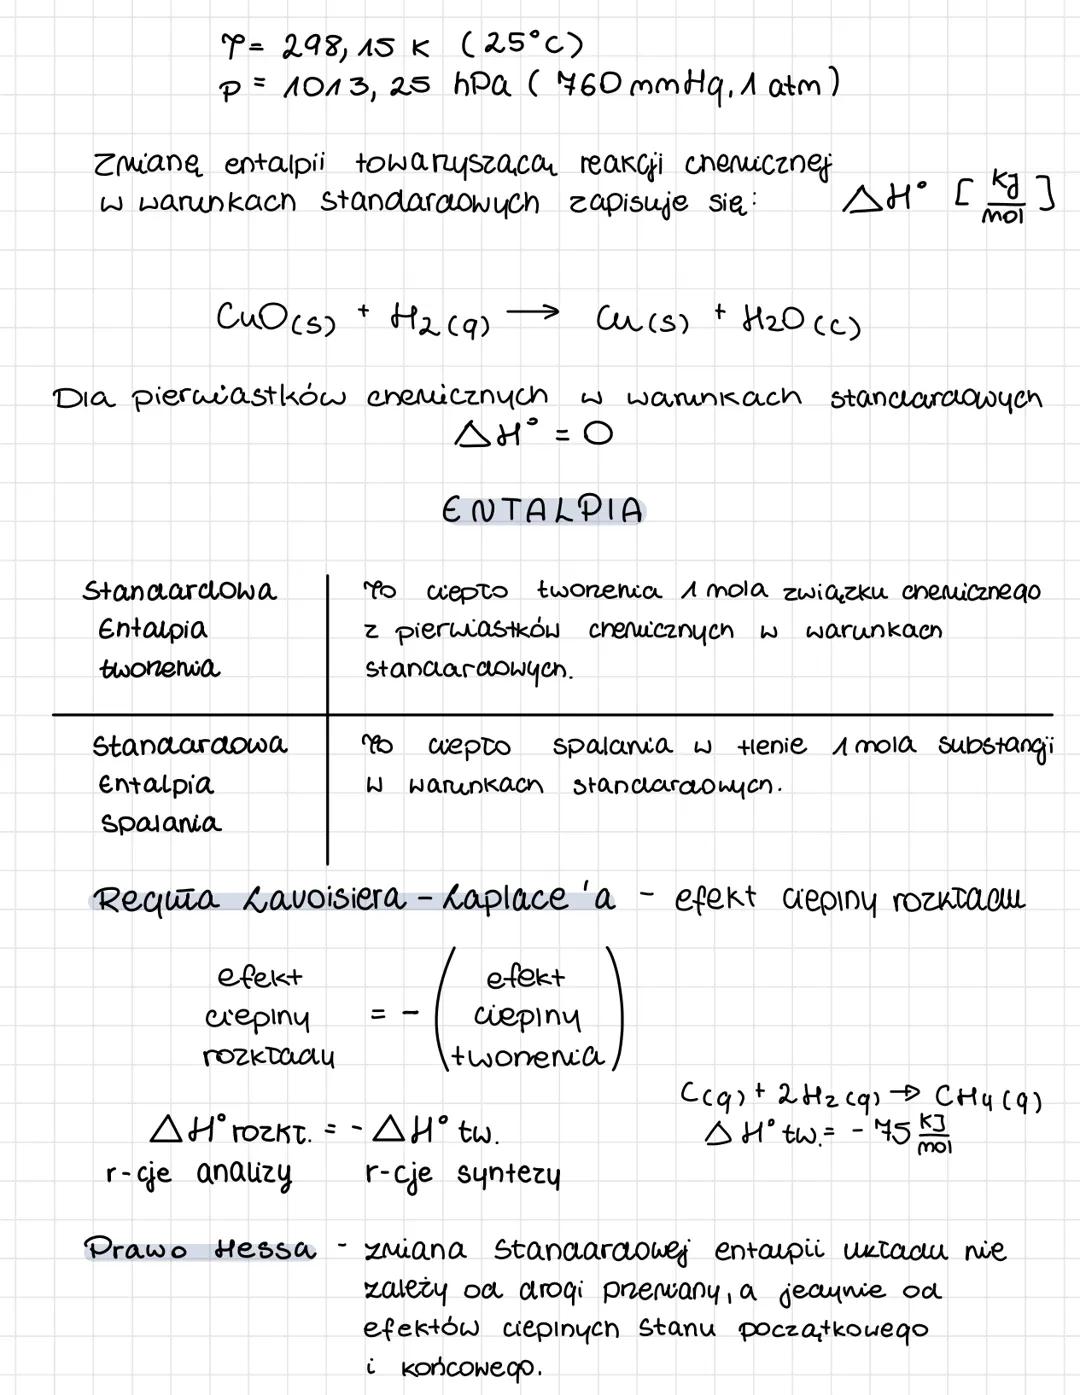 T = 298,15 K (25°C)
p = 1013,25 hPa (760 mmHg, 1 atm)
Zmianę entalpii towarzyszącą reakcji chemicznej
w warunkach standardowych zapisuje się: ΔH° [kJ/mol]
CuO(s) + H2(g) → Cu(s) + H2O(c)
Dla pierwiastków chemicznych w warunkach standardowych
ΔH° = 0
ENTALPIA
Standardowa
Entalpia
tworzenia
To ciepło tworzenia 1 mola związku chemicznego
z pierwiastków chemicznych w warunkach
standardowych.
Standardowa
Entalpia
Spalania
To ciepło spalania w tlenie 1 mola substancji
w warunkach standardowych.
Reguła Lavoisiera - Laplace'a - efekt cieplny rozkładu
efekt
cieplny
rozkładu
= -
(efekt
cieplny
tworzenia)
C(g) + 2H2(g) → CH4(g)
ΔH° tw. = -75 kJ/mol
ΔH° rozkł. = - ΔH° tw.
r-cje analizy r-cje syntezy
Prawo Hessa - zmiana standardowej entalpii układu nie
zależy od drogi przemiany, a jedynie od
efektów cieplnych stanu początkowego
i końcowego.